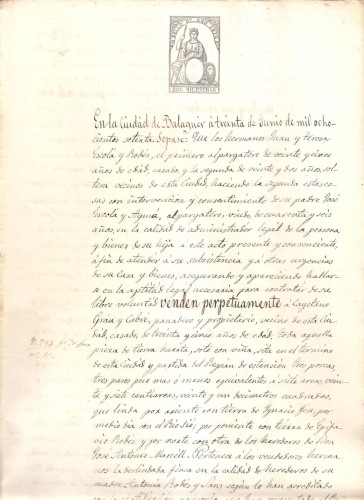 200 MILESIMAS
En la Ciudad de Balaguer á treinta de Junio de mil ocho-
cientos setenta. Sepase: Que los hermanos Juan y Teresa
Escolá y Robés, el primero alpargatero de veinte y cinco
años de edad, casado, y la segunda de veinte y dos años, sol-
tera vecinos de esta Ciudad, haciendo la segunda estas co-
sas con intervencion y consentimiento de su padre José
Escolá y alpargatero, viudo de cuarenta y seis
años, en la calidad de administrador legal de la persona
y bienes de su hija á este acto presente y consenciente,
á fin de atender á su subsistencia y á otras urgencias
de su Casa y bienes, asegurando y apareciendo hallar-
se en la aptitud legal necesaria para contratar de su
libre voluntad venden perpetuamente á Cayetano
Grau y Cabré, ganadero y propietario, vecino de esta Ciu-
dad, casado, de treinta y cinco años de edad, toda aquella
pieza de tierra huerta, sita en el termino
de esta Ciudad y partida del de extensión tres porcas,
tres pares poco mas ó menos equivalentes á siete areas, vein-
te y siete centiareas, veinte y un decimetros cuadrados,
que linda por oriente con tierra de Ignacio por
medio dia con el por poniente con tierra de
Robés y por norte con otra de los herederos de Don
José Antonio Pertenece á los vendedores herma-
nos la deslindada finca en la calidad de herederos de su
madre Antonia Robés y segun lo han acreditado